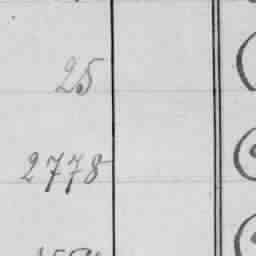 25
2778